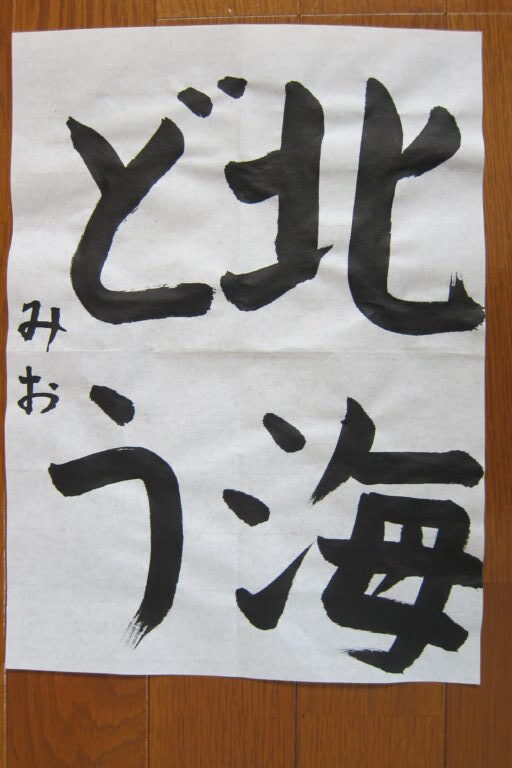 北海
どう
みお